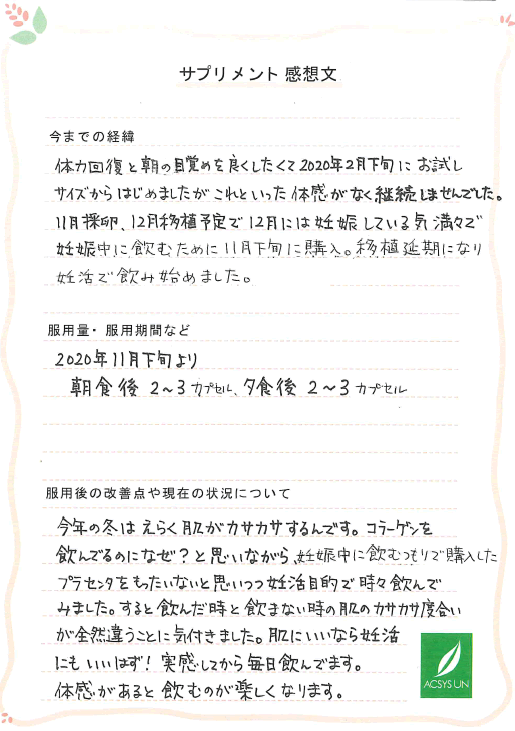 サプリメント 感想文
今までの経緯
体力回復と朝の目覚めを良くしたくて2020年2月下旬にお試し
サイズからはじめましたがこれといった体感がなく継続しませんでした。
11月採卵、12月移植予定で12月には妊娠している気満々で
妊娠中に飲むために11月下旬に購入。移植延期になり
妊活で飲み始めました。
服用量・服用期間など
2020年11月下旬より
朝食後 2〜3カプセル、夕食後 2〜3カプセル
服用後の改善点や現在の状況について
今年の冬はえらく肌がカサカサするんです。コラーゲンを
飲んでるのになぜ?と思いながら、妊娠中に飲むつもりで購入した
プラセンタをもったいないと思いつつ妊活目的で時々飲んで
みました。すると飲んだ時と飲まない時の肌のカサカサ度合い
が全然違うことに気付きました。肌にいいなら妊活
にもいいはず!実感してから毎日飲んでます。
体感があると飲むのが楽しくなります。
ACSYSUN